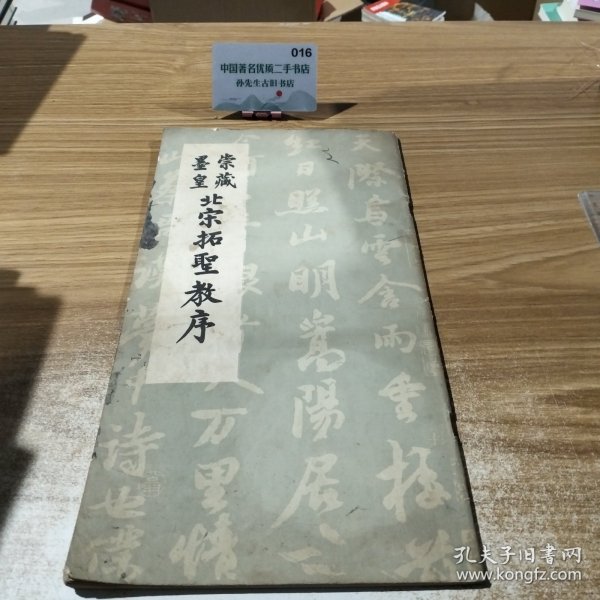 016
中国著名优质二手书店
孙先生古旧书店
崇藏
墨皇
北宋拓聖教序
天際烏雲含雨重樓前
紅日照山明嵩陽居士
人万里情
詩世傳
孔夫子旧书网
www.kongfz.com